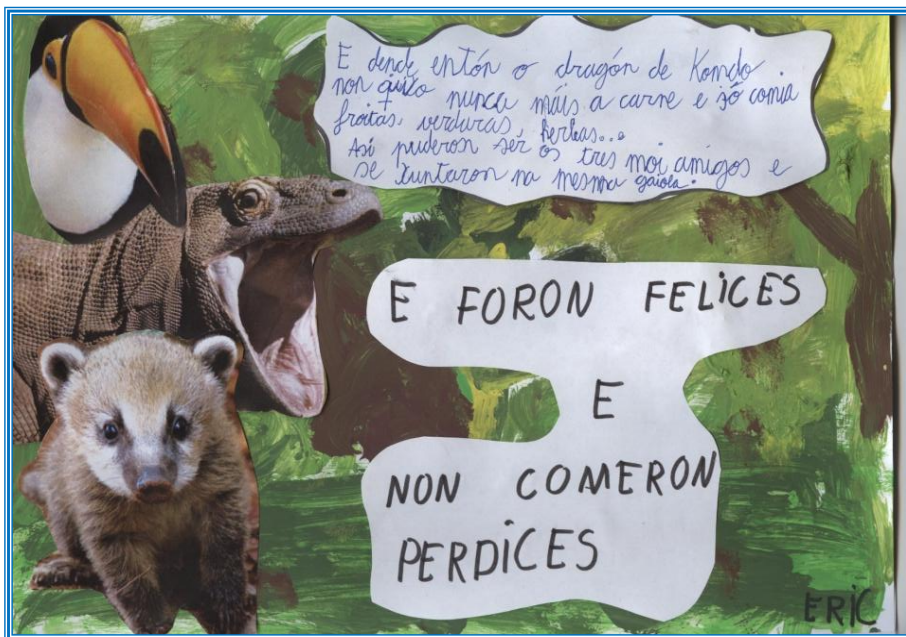 E dende entón o dragón de Komdo
non quixo nunca máis a carne e só comia
froitas, verduras, herbas...
Así puderon ser os tres moi amigos e
se xuntaron na mesma gaiola.
E FORON FELICES
E
NON COMERON
PERDICES
ERIC